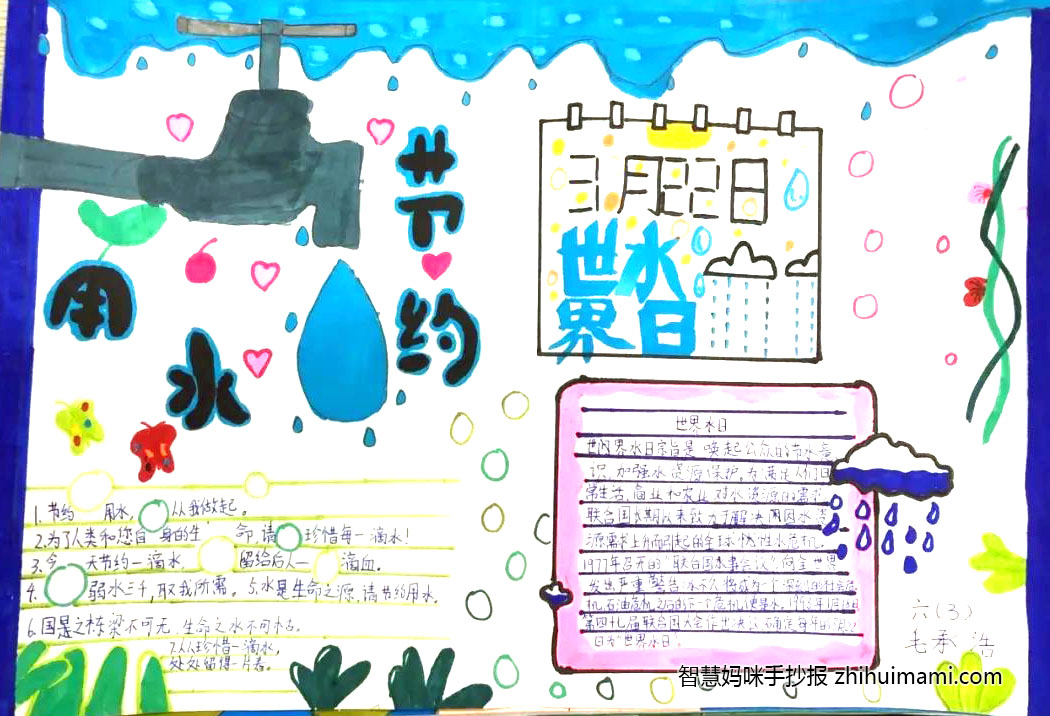 节约
用水
3月22日
世界
水日
1.节约用水,从我做起。
2.为了人类和您自身的生命,请珍惜每一滴水!
3.今天节约一滴水,留给后人一滴血。
4.弱水三千,取我所需。5.水是生命之源,请节约用水。
6.国是之栋梁不可无,生命之水不可枯。
7.人人珍惜一滴水,
处处留得一片春。
世界水日
世界水日宗旨是唤起公众的节水意
识,加强水资源保护。为满足人们日
常生活、商业和农业对水资源的需求
联合国长期以来致力于解决因水资
源需求上升而引起的全球性水危机。
1977年召开的"联合国水事会议",向全世界
发出严重警告:水不久将成为一个深刻的社会危
机,石油危机之后的下一个危机便是水。
第四十七届联合国大会作出决议确定每年的
日为"世界水日"。
六(3)
毛承浩
智慧妈咪手抄报 zhihuimami.com